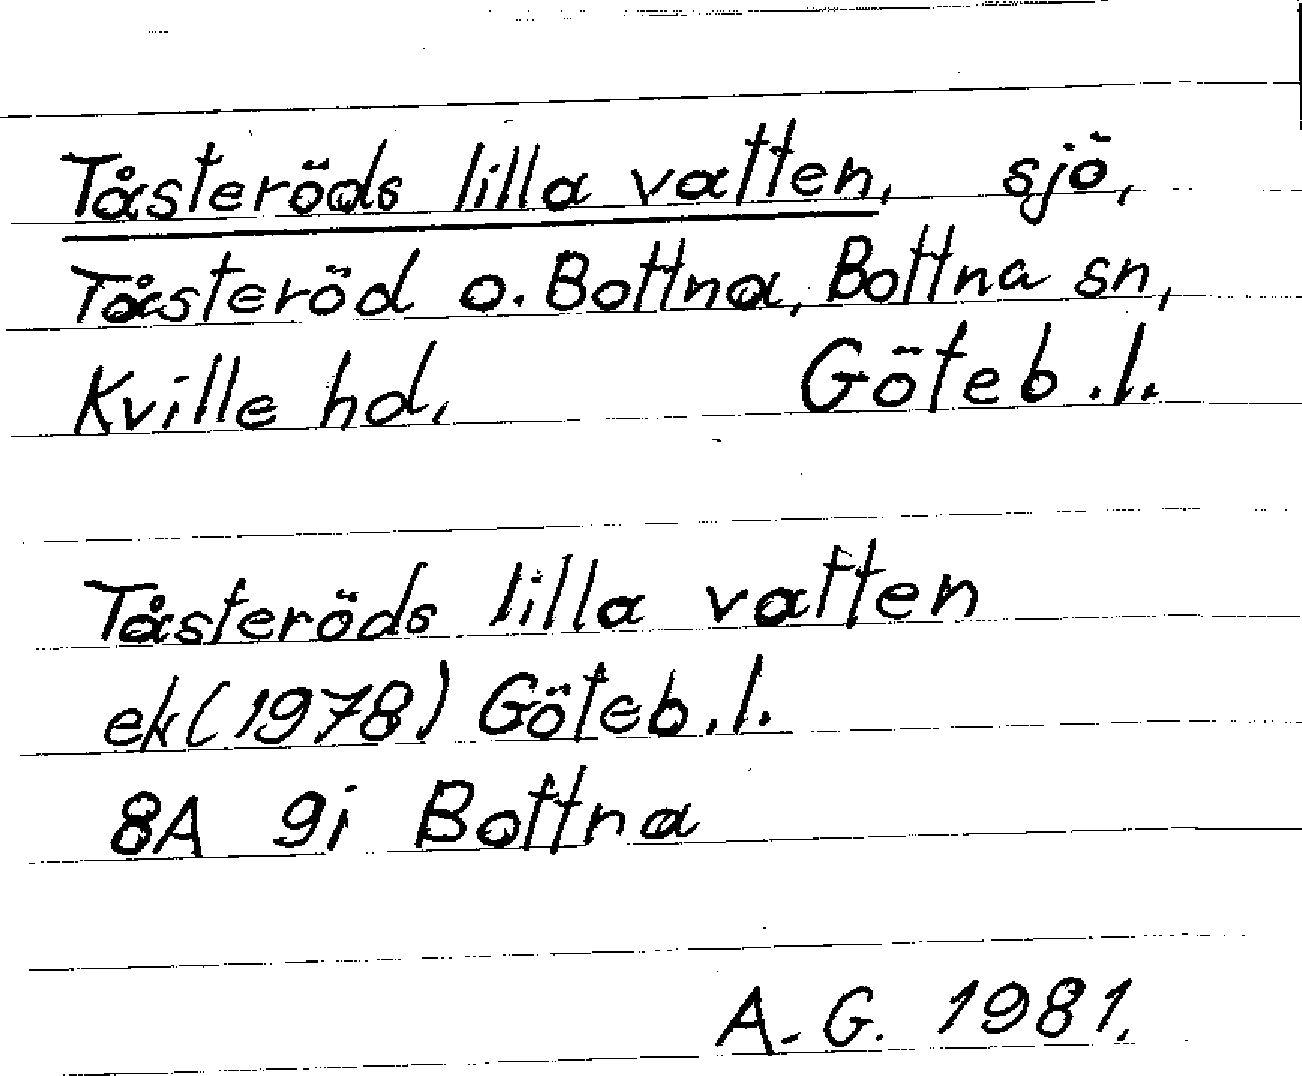 Tåsteröds lilla vatten, sjö,
Tåsteröd o. Bottna, Bottna sn,
Kville hd. Göteb.l.
Tåsteröds lilla vatten
ek(1978) Göteb.l.
8A 9i Bottna
A.G. 1981.